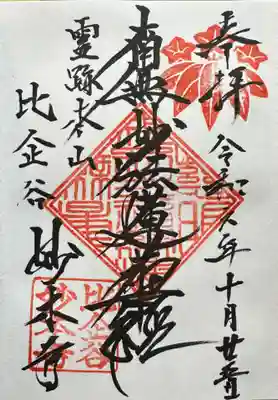 奉拝
令和六年十月廿一日
南無妙法蓮華経
霊跡本山
比企谷
妙本寺
比企谷
妙本寺